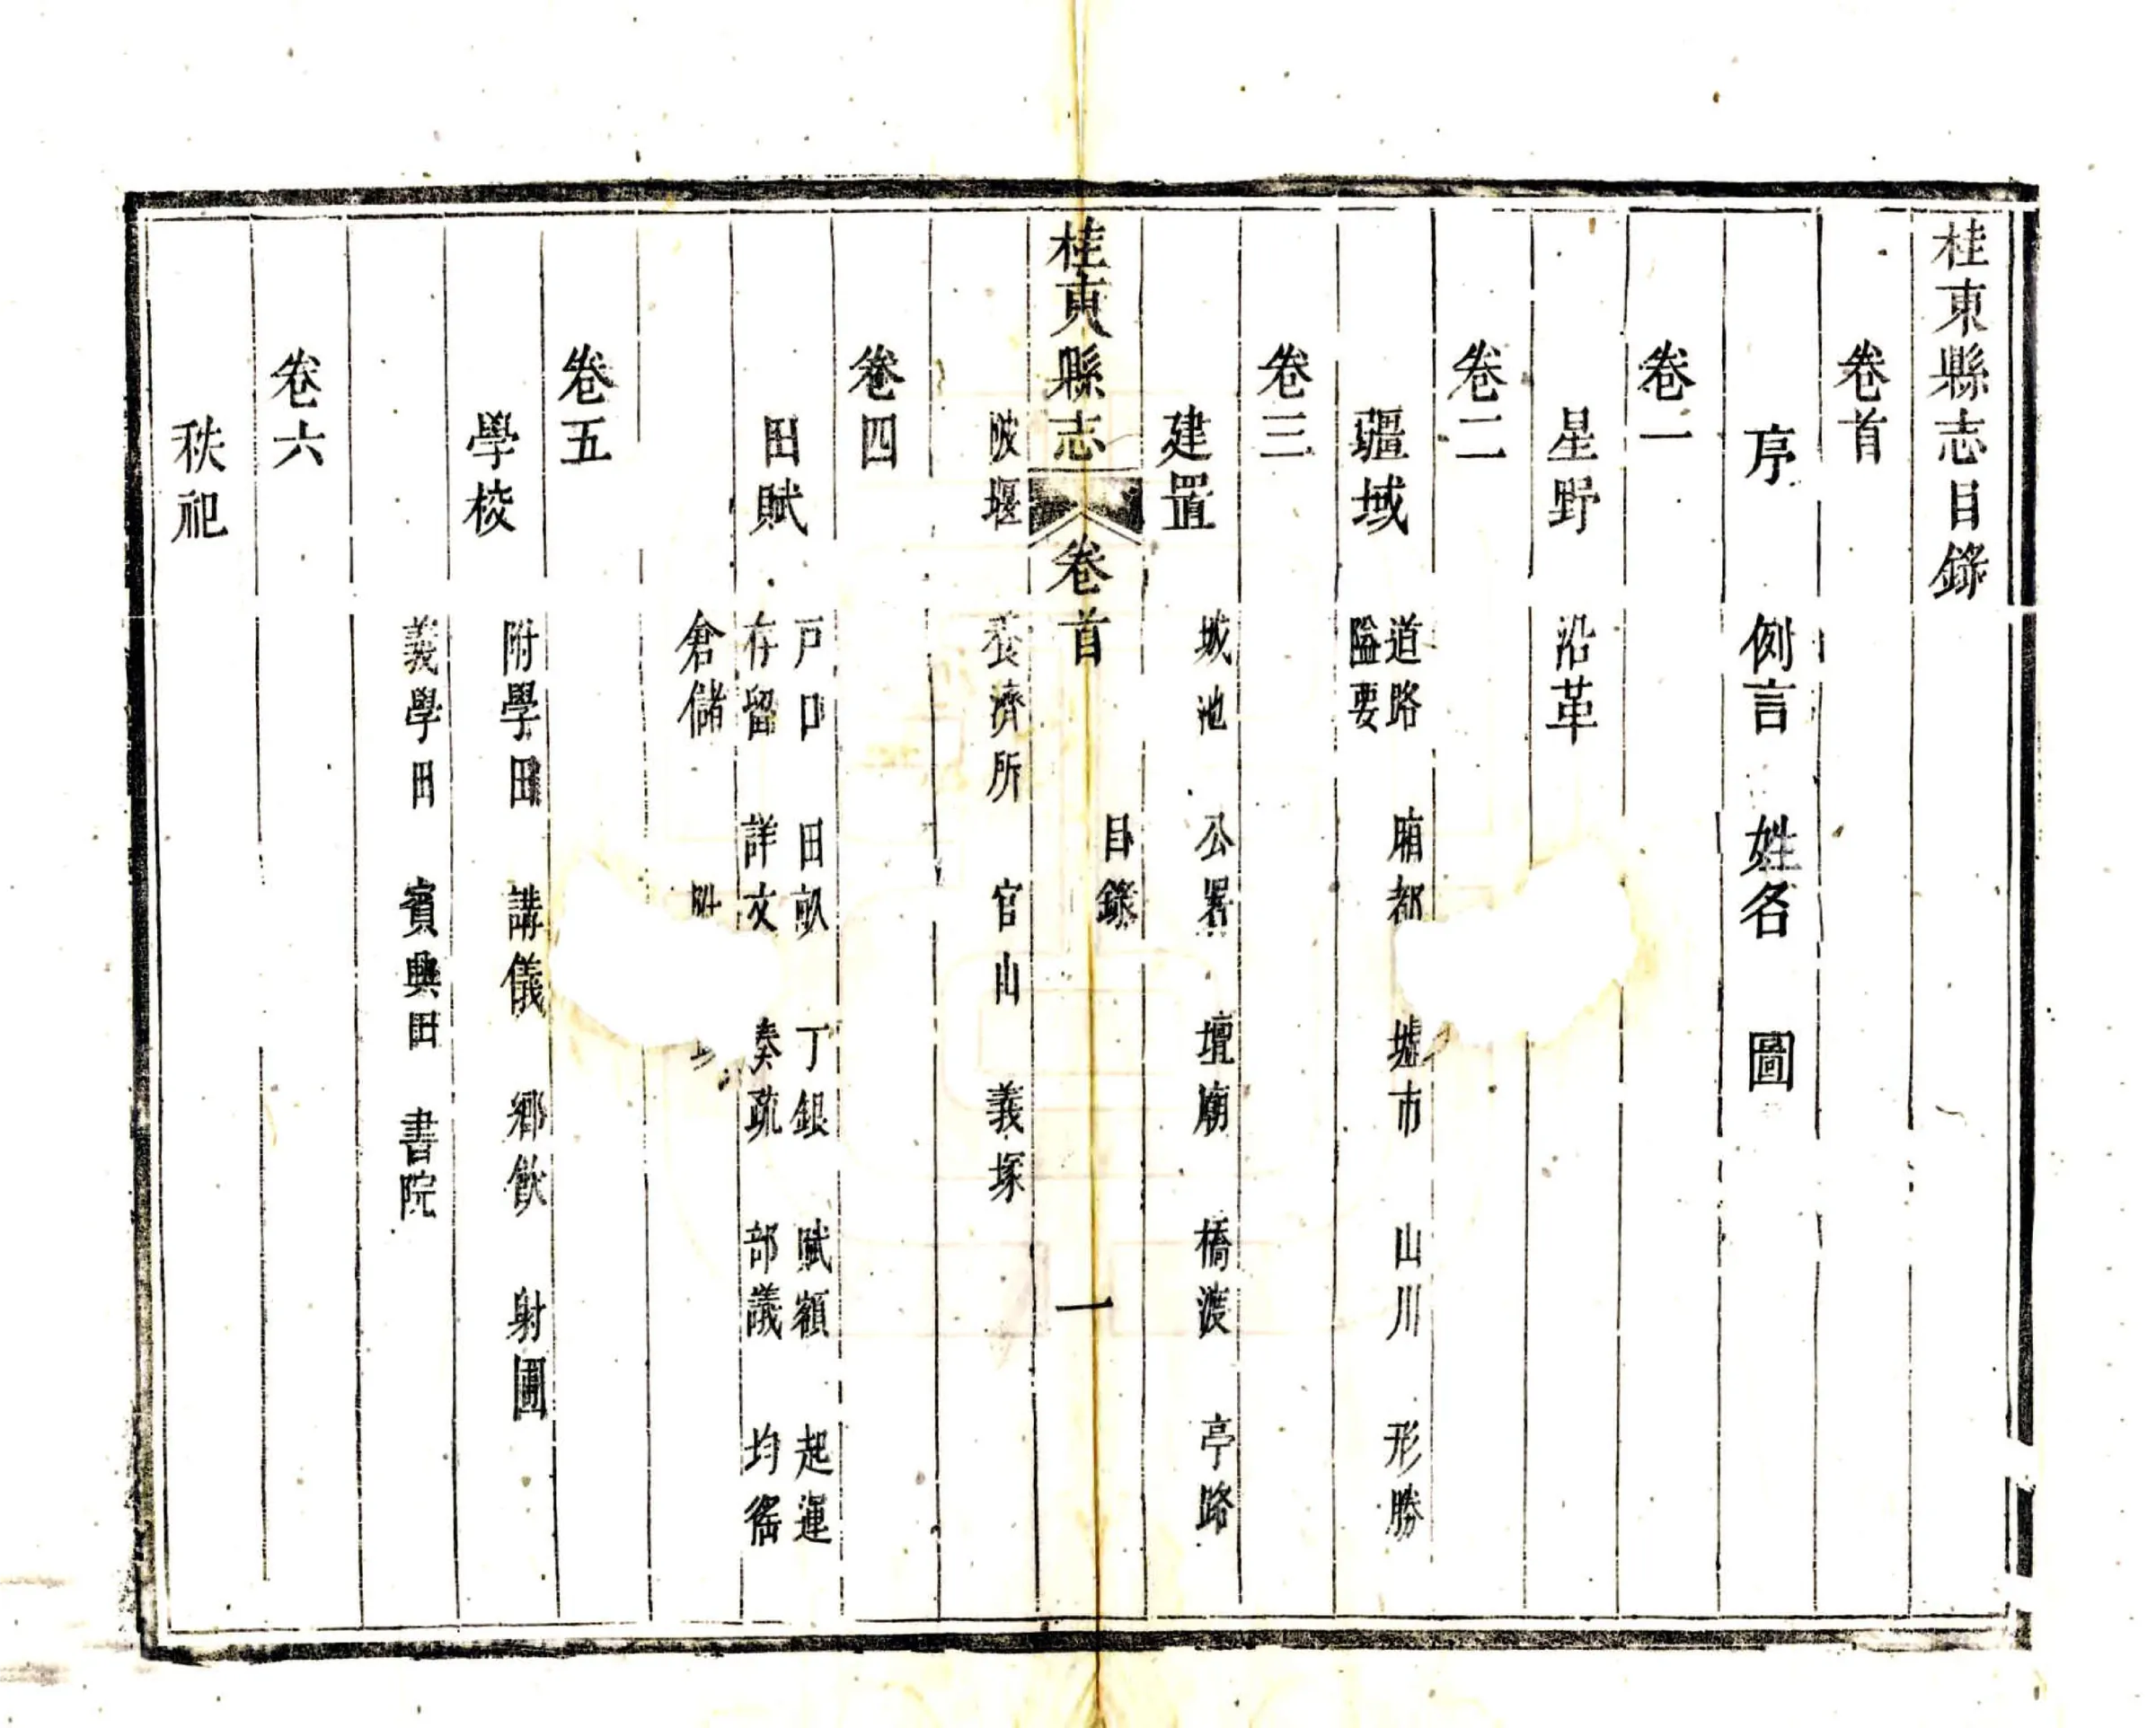 桂東縣志目錄
卷首
序 例言 姓名 圖
卷一
星野 沿革
卷二
疆域 道路 廂都 墟市 山川 形勝
隘要
卷三
建置 城池 公署 壇廟 橋渡 亭路
桂東縣志 卷首 目錄 一
陂堰 養濟所 官山 義塚
卷四
田賦 戶口 田畝 丁銀 賦額 起運
存留 詳文 奏疏 部議 均徭
倉儲
卷五
學校 附學田 講儀 鄉飲 射圃
義學田 賓興田 書院
卷六
秩祀